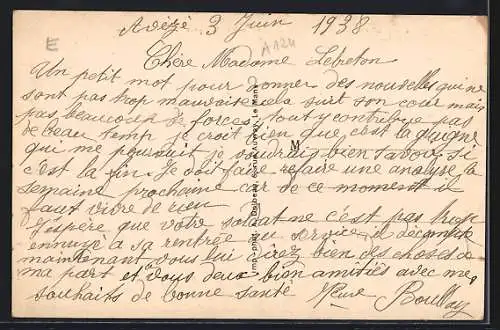 Avézé 3 Juin 1938
E
A124
Chère Madame Lebreton
Un petit mot pour donner des nouvelles qui ne
sont pas trop mauvaise cela suit son cour mais
pas beaucoup de forces, tout y contribue pas
de beau temp je croit bien que c'est la guigne
qui me poursuit je voudrais bien savoir si
c'est la fin. Je doit faire refaire une analyse la
semaine prochaine car de ce moment il
faut vivre de rien
J'espère que votre soldat ne c'est pas trop
ennuyé a sa rentrée au service
maintenant vous lui direz bien des choses de
ma part et a vous deux bien amitiés avec mes
souhaits de bonne santé Veuve Boullay
M
Le Mans